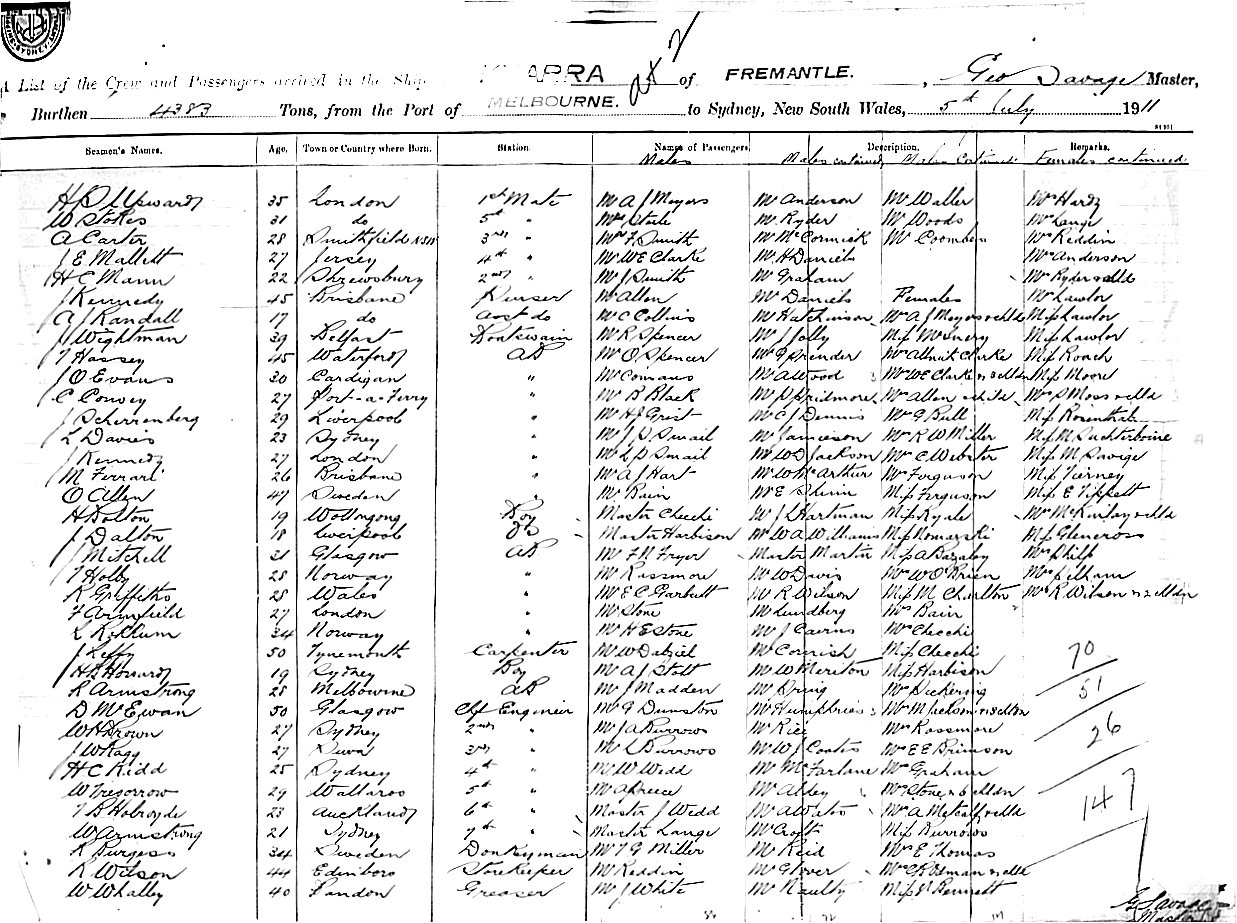 A List of the Crew and Passengers arrived in the Ship ARRA of FREMANTLE. , Geo Savage Master,
Burthen 4383 Tons, from the Port of MELBOURNE. to Sydney, New South Wales, 5th July 1911
Seamen's Names. Age. Town or Country where Born. Station. Names of Passengers. Description. Remarks.
Males Males continued Males Continued Females continued
35 London 1st Mate Mr A J Meyers Mr Anderson Mr Waller Mrs Hardy
W Stokes 31 do 5th " Mr Ryder Mr Woods Mrs Lange
A Carter 28 Smithfield NSW 3rd " Mr F. Smith Mr McCormick Mr Coombes Mrs Reddin
J E Mallett 27 Jersey 4th " Mr W E Clarke Mr H Daniels Mrs Anderson
H C Mann 22 Shrewsbury 2nd " Mr J Smith Mr Graham Mrs Ryder & child
J Kennedy 45 Brisbane Purser Mr Allen Mr Daniels Females Mrs Lawlor
A J Randall 17 do Asst do Mr C Collins Mr Hutchinson Mrs A J Meyers & child Miss Lawlor
J Wightman 39 Belfast Boatswain Mr R Spencer Mr J Jolly Miss Lawlor
T Hassey 45 Waterford AB Mr O Spencer Clarke Miss Roach
J O Evans 30 Cardigan " Mr Comans Mr A Wood Mrs W E Clarke Miss Moore
C Convey 27 Port-a-Ferry " Mr B Black Mrs Allen & child Mrs S Moss & child
29 Liverpool " Mr H J Grist Mr C J Dennis Mrs G Bull Miss Rosenthal
L Davies 23 Sydney " Mr J S Smail Mr Jamieson Mrs R W Miller
J Kennedy 27 London " Mr L S Smail Mr W D Jackson Mrs C Webster Miss M Savige
M Ferrari 26 Brisbane " Mr A J Hart Mr W McArthur Mrs Ferguson Miss Tierney
O Allen 47 Sweden " Mr Bain Miss Ferguson Miss E Tippett
H Dalton 19 Wollongong Boy Master Checchi Mr J L Hartman Miss Ryale Mrs McKinlay & child
J Dalton 18 Liverpool Master Harbison Mr W A Williams Miss Glencross
J Mitchell 21 Glasgow AB Mr F N Fryer Master Martin
T Holby 28 Norway " Mr Rassmore Mr W Davis Mrs W O'Brien Mrs Pelham
R Griffiths 28 Wales " Mr E C Garbett Mr R Wilson Miss M Charlton Mrs R Wilson & 2 chldn
F Armfield 27 London " Mr Stone Mr Lundberg Mrs Bain
34 Norway " Mr H E Stone Mr J Cairns Mrs Checchi
50 Tynemouth Carpenter Mr W Dalziel Mr Cornish Miss Checchi 70
H B Howard 19 Sydney Boy Mr A J Stott Mr W Meriton Miss Harbison
R Armstrong 28 Melbourne AB Mr J Madden Mr Pring Mrs Pickering 51
D McEwan 50 Glasgow Chf Engineer Mr G Dunston Mr Humphries Mrs M Jackson
W H Brown 27 Sydney 2nd " Mr J A Burrows Mr Rice Mrs Rassmore 26
J W Ragg 27 Suva 3rd " Mr L Burrows Mr W J Coates Mrs E E Brimson
H C Kidd 25 Sydney 4th " Mr W Wedd Mr McFarlane Mrs Graham
W Tresorrow 29 Wallaroo 5th " Mr A Preece Mr Abley Mrs Stone 147
T B Holroyde 23 Auckland 6th " Master J Wedd Mr A Wates Mrs A Metcalf & child
W Armstrong 21 Sydney 7th " Master Lange Mr Croft Miss Burrows
R Burgess 34 Sweden Donkeyman Mr T G Miller Mr Reid Mrs E Thomas
R Wilson 44 Edinboro Storekeeper Mr Reddin Mr Glover
W Whalley 40 London Greaser Mr J White Mr Naulty Miss N Bennett
G Savage
Master